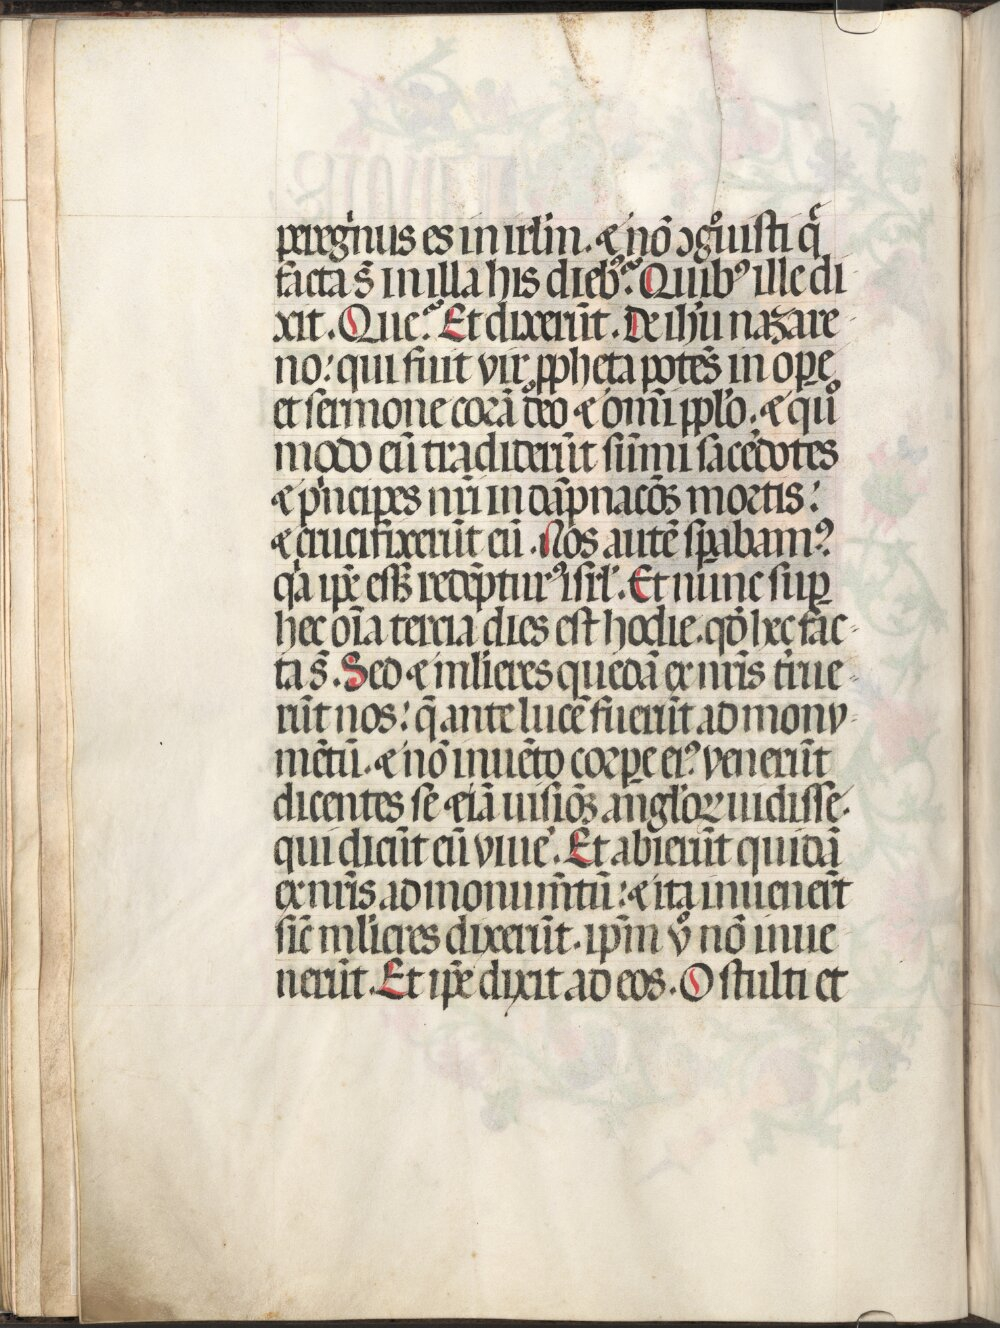 peregͥnus es in irlm̄. ⁊ nō ↄgͦuisti q̄
facta s̄ in illa his dieb⁹? Quib⁹ ille di
xit. Que? Et dixerūt. De ihū nazare
no: qui fuit vir ꝓpheta potēs in oꝑe
et sermone corā deo ⁊ omī pplo. ⁊ quͦ
modo eū tradiderūt sūmi sacerdotes
⁊ pͥncipes nr̄i in dāpnacōꝫ mortis:
⁊ crucifixerūt eū. Nos autē sꝑabam⁹
qͥa ip̄e eēt redēptur⁹ isrl̄. Et nunc suꝑ
hec oīa tercia dies est hodie. qꝺ̄ hec fac-
ta s̄. Sed ⁊ ml̄ieres quedā ex nr̄is t̄rue-
rūt nos: q̄ ante lucē fuerūt ad monv-
mētū. ⁊ nō inuēto corꝑe ei⁹ venerūt
dicentes se ⁊iā uisiōꝫ angl̄oꝝ uidisse.
qui dicūt eū viue᷑. Et abierūt quidā
ex nr̄is ad monum̄tū: ⁊ ita inuener̄t
sic̄ ml̄ieres dixerūt. ip̄m vͦ nō inue
nerūt. Et ip̄e dixit ad eos. O stulti et